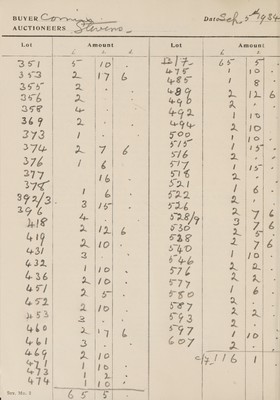 BUYER Corning Date Sep 5th 1934
AUCTIONEERS Stevens
Lot Amount
£ s. d.
351 5 10 .
353 2 17 6
355 2 . .
356 2 . .
358 4 . .
369 2 . .
373 1 . .
374 2 7 6
376 1 6
377 16
378
392/3 1 6
396 3 15
418 4
419 2 12 6
431 2 10
432 3
436 1 10
451 2 10
452 2
453 2 10
460 3
461 2 17 6
469 3
471 2 10
473 1 10
474 1 2
1 10
65 5
Lot Amount
£ s. d.
B/7 65 5
475 1 10
485 1 8
489 2 12 6
490 2
492 1 10
494 2 10
500 1 10
515 1 15
516 2
517 1 15
518 2
521
522 1 6
526 2
528/9 2 7 6
530 3 7 6
528 2 5
540 2 7 6
546 1 10
576 2 2
577 2 2
580 1 6
587 2
593 2 2
597 1 10
607 2
c/7 116 1